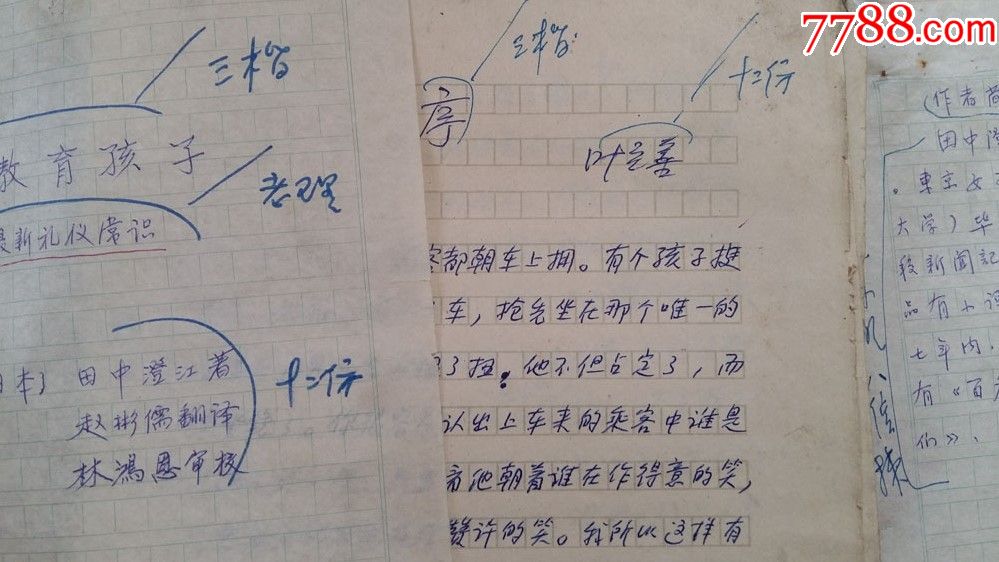 7788.com
三楷
教育孩子
老理
最新礼仪常识
十二仿
田中澄江著
赵彬儒翻译
林鸿恩审校
三楷
序
十二仿
叶至善
都朝车上拥。有个孩子
车，抢先坐在那个唯一的
了扭。他不但占定了，而
认出上车来的乘客中谁是
着他朝着谁在作得意的笑，
赞许的笑。我所以这样有
(作者
田中澄
。東京女
大学）毕
新聞記
品有小说
七年内
有《百
们》、